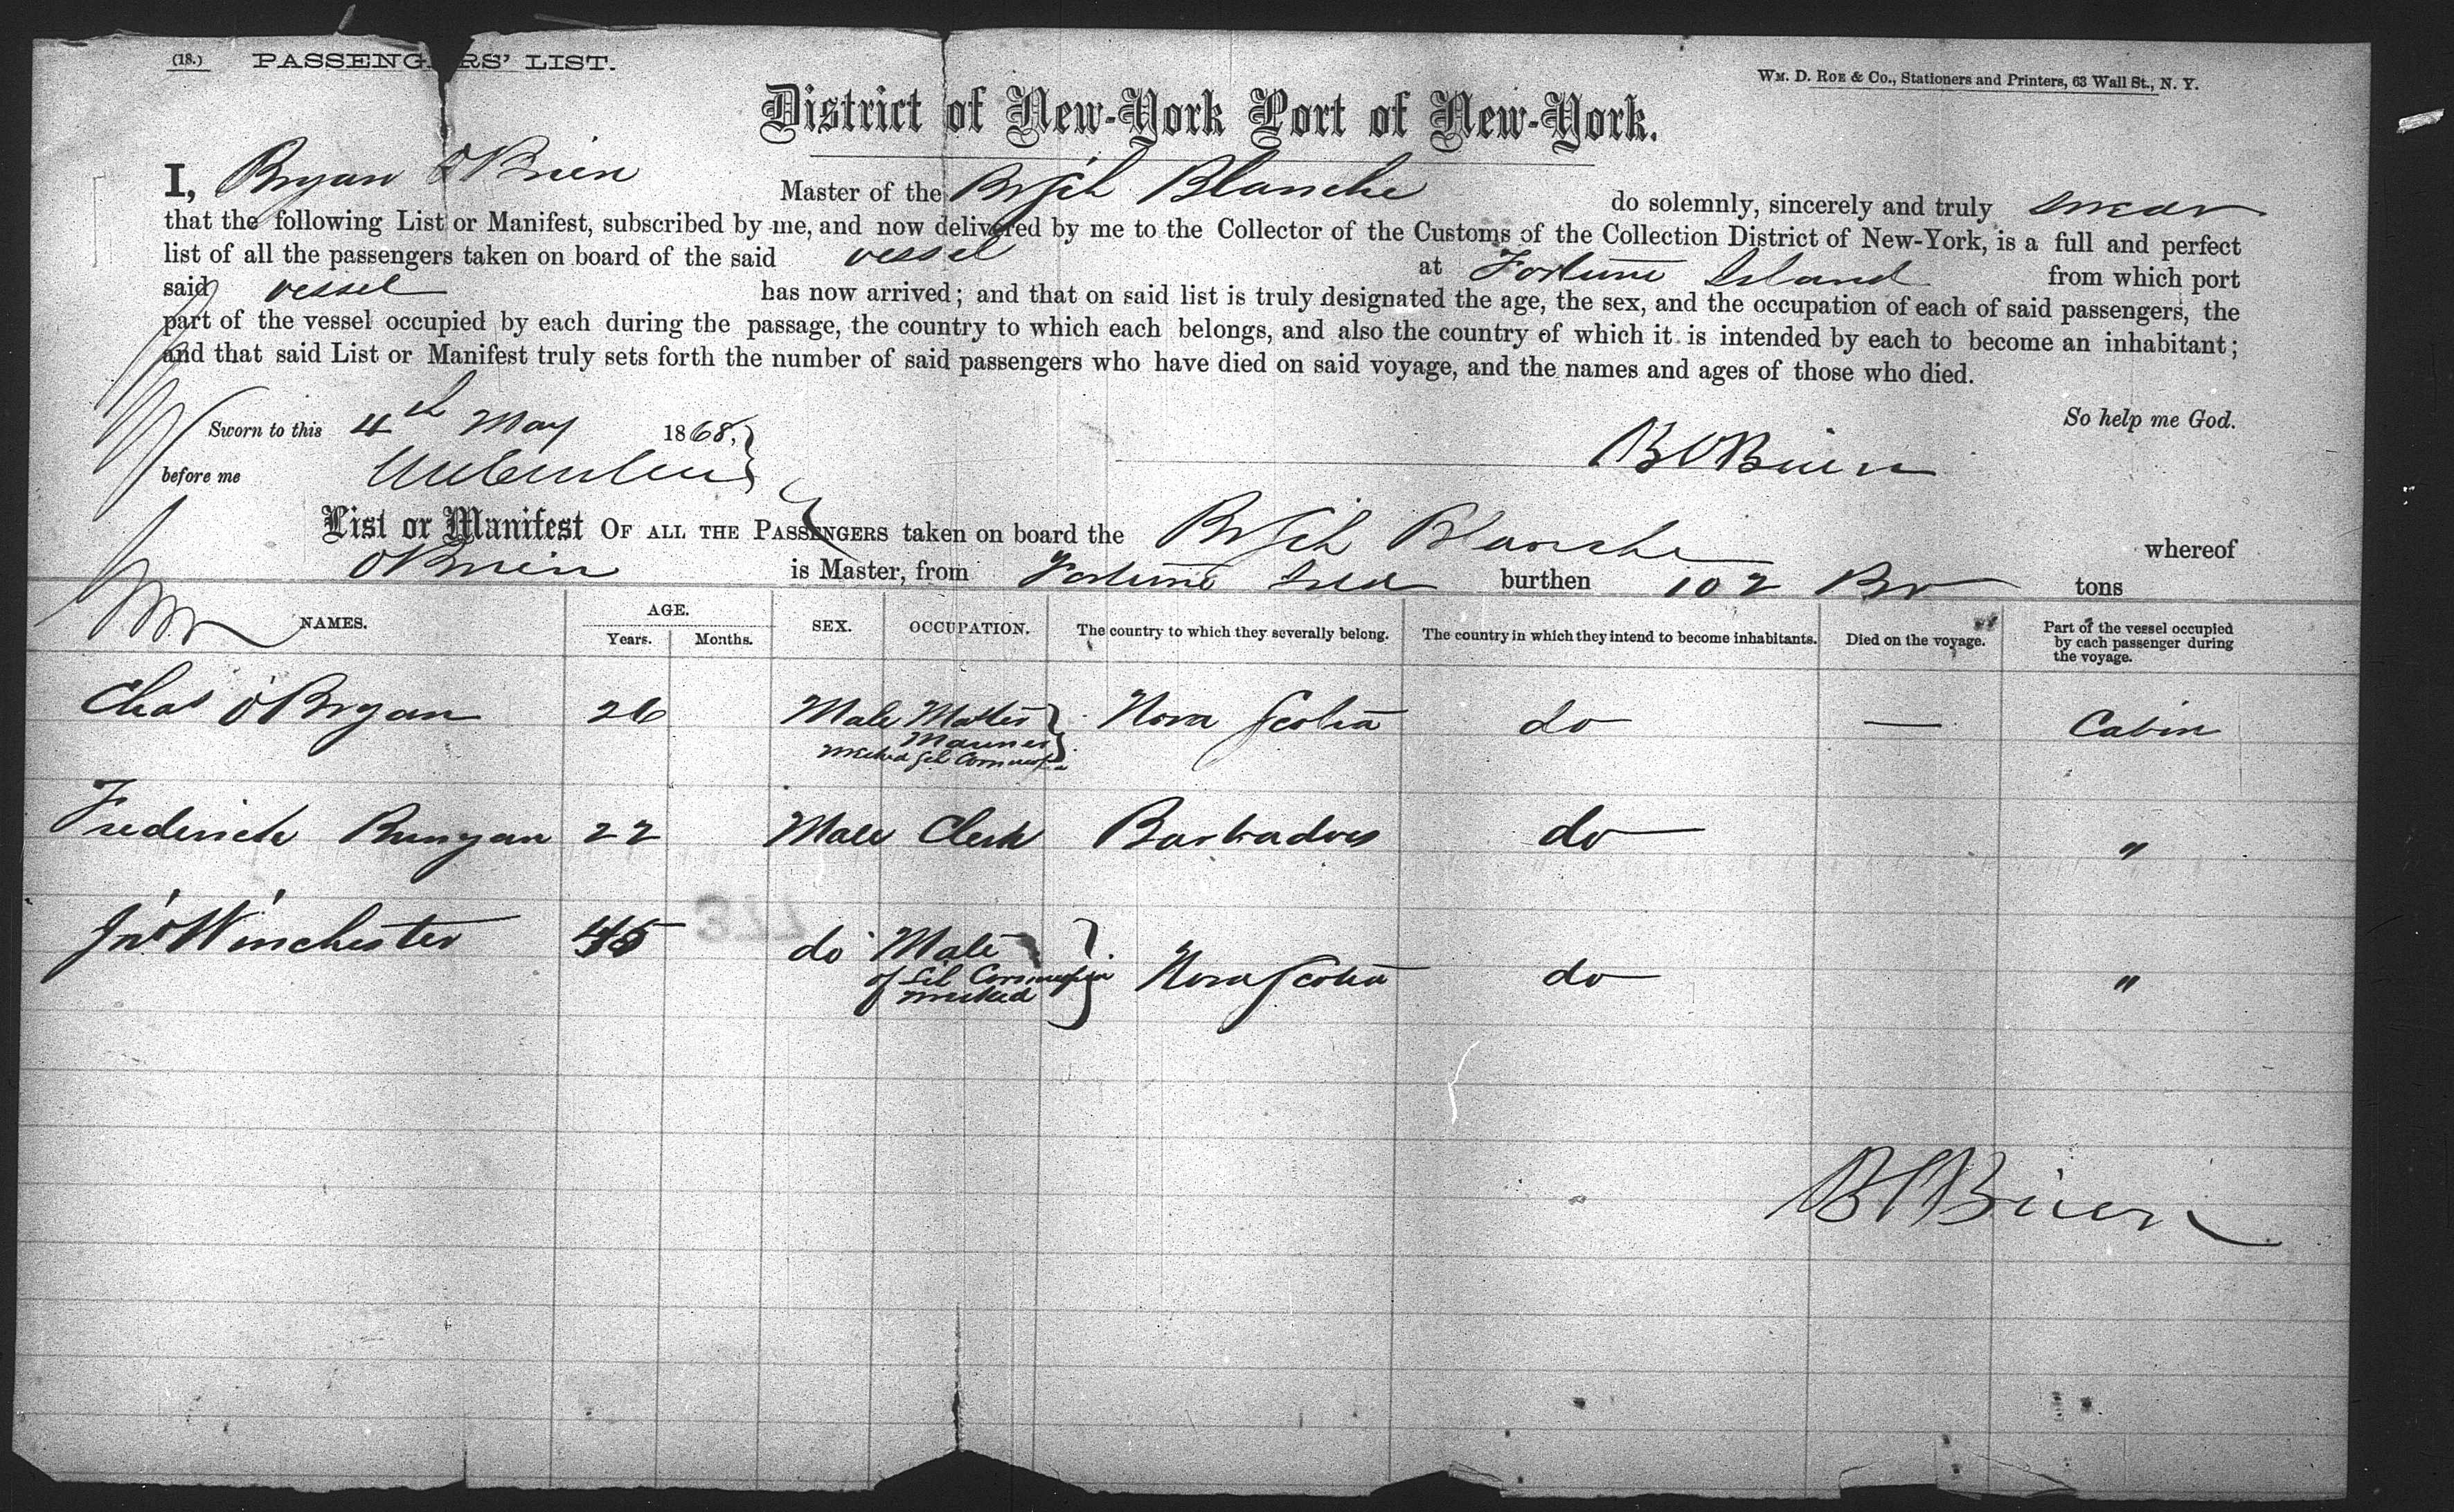 (18.) PASSENGERS' LIST.
Wm. D. Roe & Co., Stationers and Printers, 63 Wall St., N. Y.
District of New-York Port of New-York.
I, Bryan O'Brien Master of the Br Sch Blanche do solemnly, sincerely and truly swear
that the following List or Manifest, subscribed by me, and now delivered by me to the Collector of the Customs of the Collection District of New-York, is a full and perfect
list of all the passengers taken on board of the said vessel at Fortune Island from which port
said vessel has now arrived; and that on said list is truly designated the age, the sex, and the occupation of each of said passengers, the
part of the vessel occupied by each during the passage, the country to which each belongs, and also the country of which it is intended by each to become an inhabitant;
and that said List or Manifest truly sets forth the number of said passengers who have died on said voyage, and the names and ages of those who died.
So help me God.
Sworn to this 4th May 1868,
before me
B O'Brien
List or Manifest OF ALL THE PASSENGERS taken on board the Br Sch Blanche whereof
O'Brien is Master, from Fortune Isld burthen 102 Br tons
NAMES. AGE. Years. Months. SEX. OCCUPATION. The country to which they severally belong. The country in which they intend to become inhabitants. Died on the voyage. Part of the vessel occupied by each passenger during the voyage.
Chas O'Bryan 26 Male Master Nova Scotia do — Cabin
Mariner
wrecked Sch Cornucopia
Frederick Runyan 22 Male Clerk Barbadoes do "
Jno Winchester 45 do Mate Nova Scotia do "
of Sch Cornucopia
wrecked
377
B O'Brien